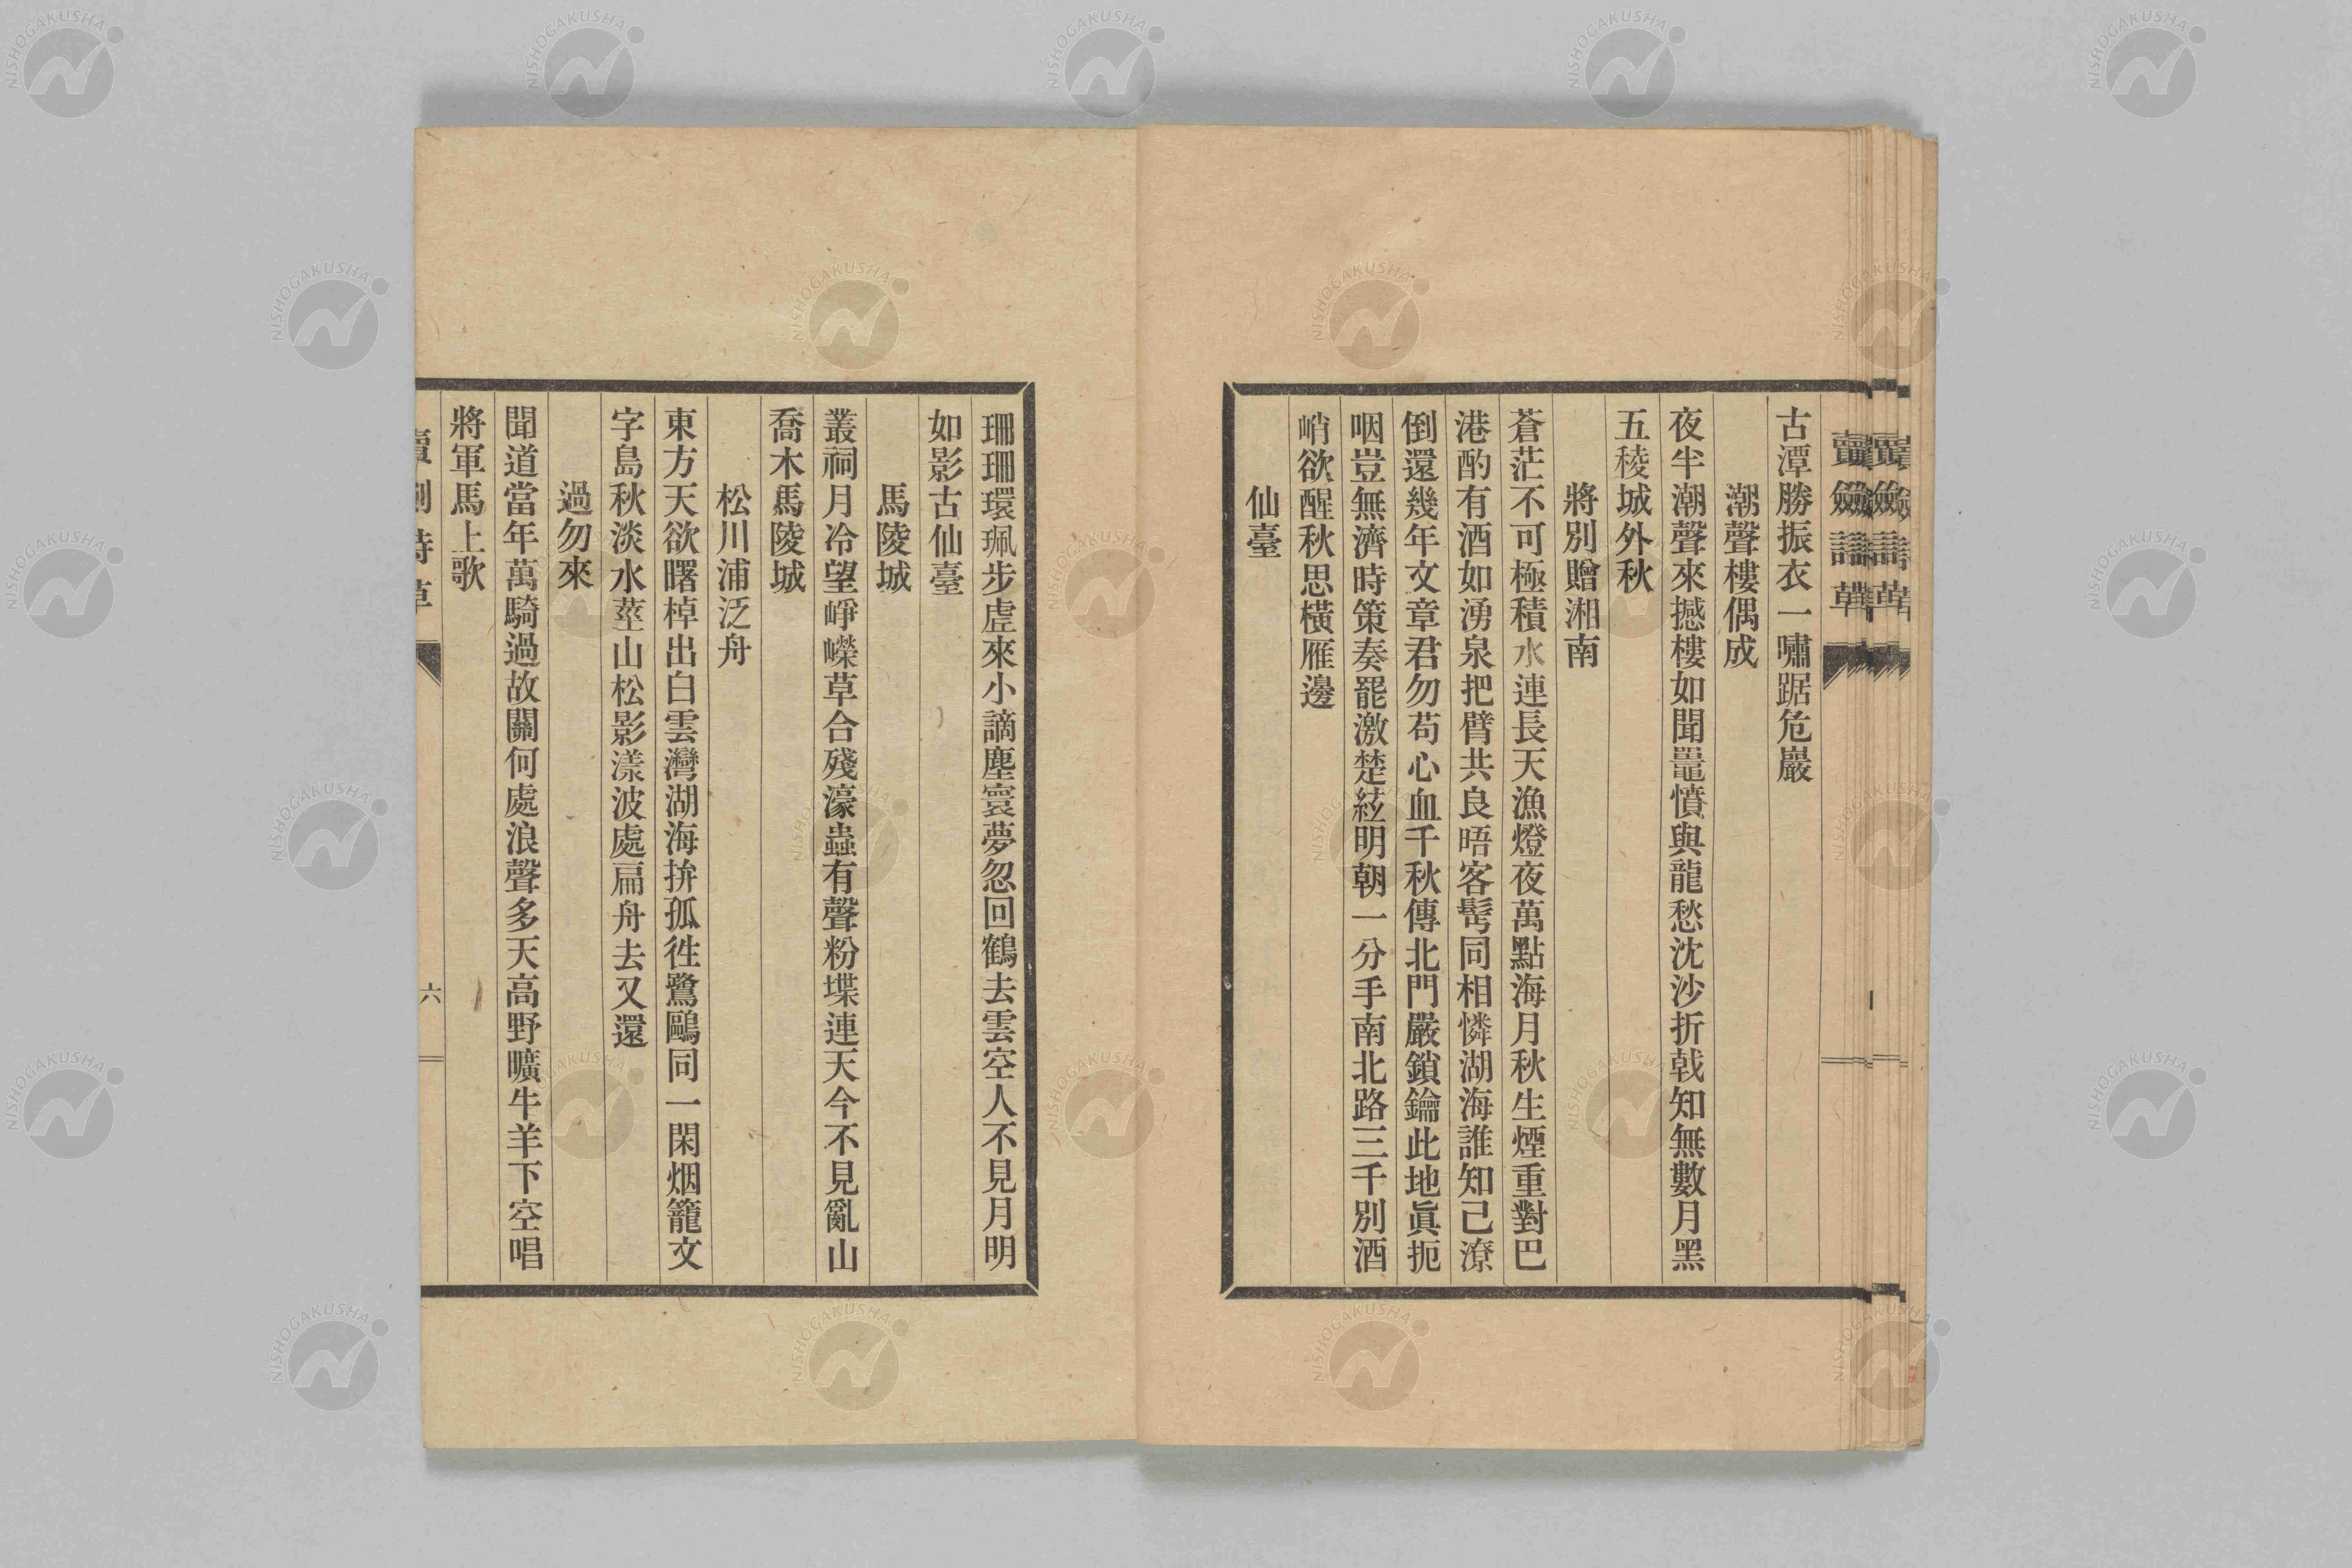 賣劍詩草
古潭勝振衣一嘯踞危巖
潮聲樓偶成
夜半潮聲來撼樓如聞鼉憤與龍愁沈沙折戟知無數月黑
五稜城外秋
將別贈湘南
蒼茫不可極積水連長天漁燈夜萬點海月秋生煙重對巴
港酌有酒如湧泉把臂共良晤客髩同相憐湖海誰知己潦
倒還幾年文章君勿苟心血千秋傳北門嚴鎖鑰此地眞扼
咽豈無濟時策奏罷激楚絃明朝一分手南北路三千別酒
峭欲醒秋思橫雁邊
仙臺
珊珊環珮步虛來小謫塵寰夢忽回鶴去雲空人不見月明
如影古仙臺
馬陵城
叢祠月冷望崢嶸草合殘濠蟲有聲粉堞連天今不見亂山
喬木馬陵城
松川浦泛舟
東方天欲曙棹出白雲灣湖海拚孤徃鷺鷗同一閑烟籠文
字島秋淡水莖山松影漾波處扁舟去又還
過勿來
聞道當年萬騎過故關何處浪聲多天高野曠牛羊下空唱
將軍馬上歌
賣劍詩草
六
NISHOGAKUSHA